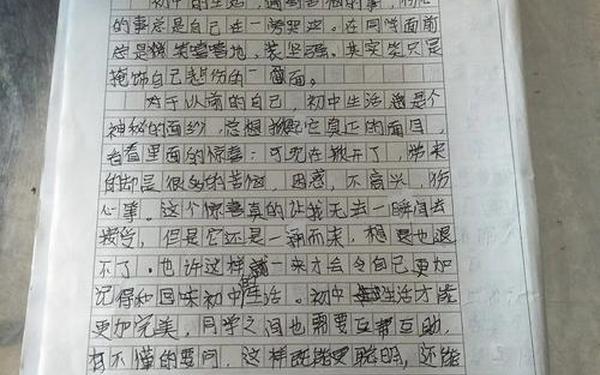 初中的生活，遇到苦恼的事，伤心
的事总是自己在一旁哭泣。在同学面前
总是微笑嘻嘻地，装坚强。其实笑只是
掩饰自己悲伤的一面。
对于以前的自己，初中生活总是个
神秘的面纱，总想揪起它真正的面目，
看看里面的惊喜；可现在揪开了，带来
的却是很多的苦恼，困惑，不高兴，伤
心事。这个惊喜真的让我无去一瞬间去
接受，但是它还是一涌而来，想要也退
不了。也许这样一来才会令自己更加
记得和回味初中的生活。初中生活才能
更加完美，同学之间也需要互帮互助，
有不懂的要问，这样既能更聪明，还能